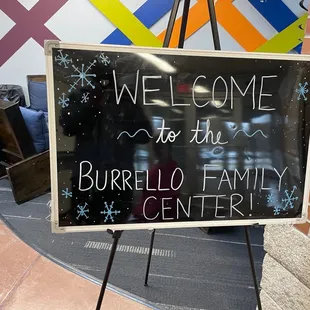 WELCOME
to the
BURRELLO FAMILY
CENTER!